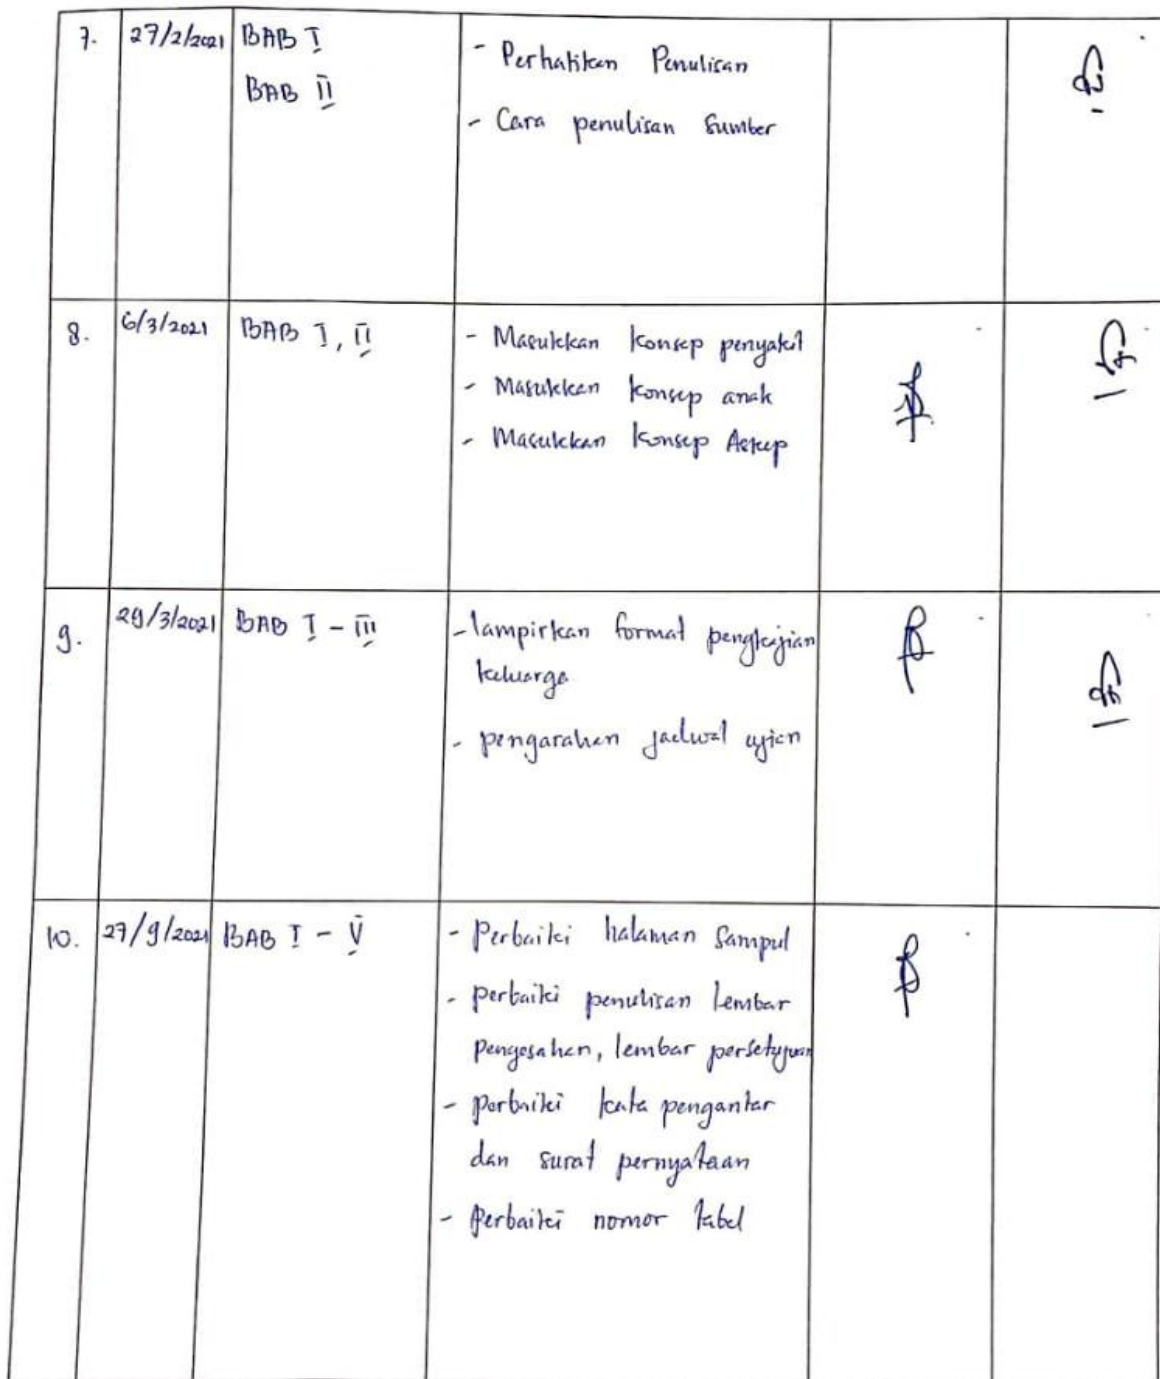 7. 27/2/2021 BAB I - Perhatikan Penulisan
BAB II
- Cara penulisan Sumber
8. 6/3/2021 BAB I, II - Masukkan konsep penyakit
- Masukkan konsep anak
- Masukkan konsep Askep
9. 29/3/2021 BAB I - III - lampirkan format pengkajian
keluarga
- pengarahan jadwal ujian
10. 27/9/2021 BAB I - V - Perbaiki halaman Sampul
- perbaiki penulisan lembar
pengesahan, lembar persetujuan
- perbaiki kata pengantar
dan surat pernyataan
- Perbaiki nomor tabel